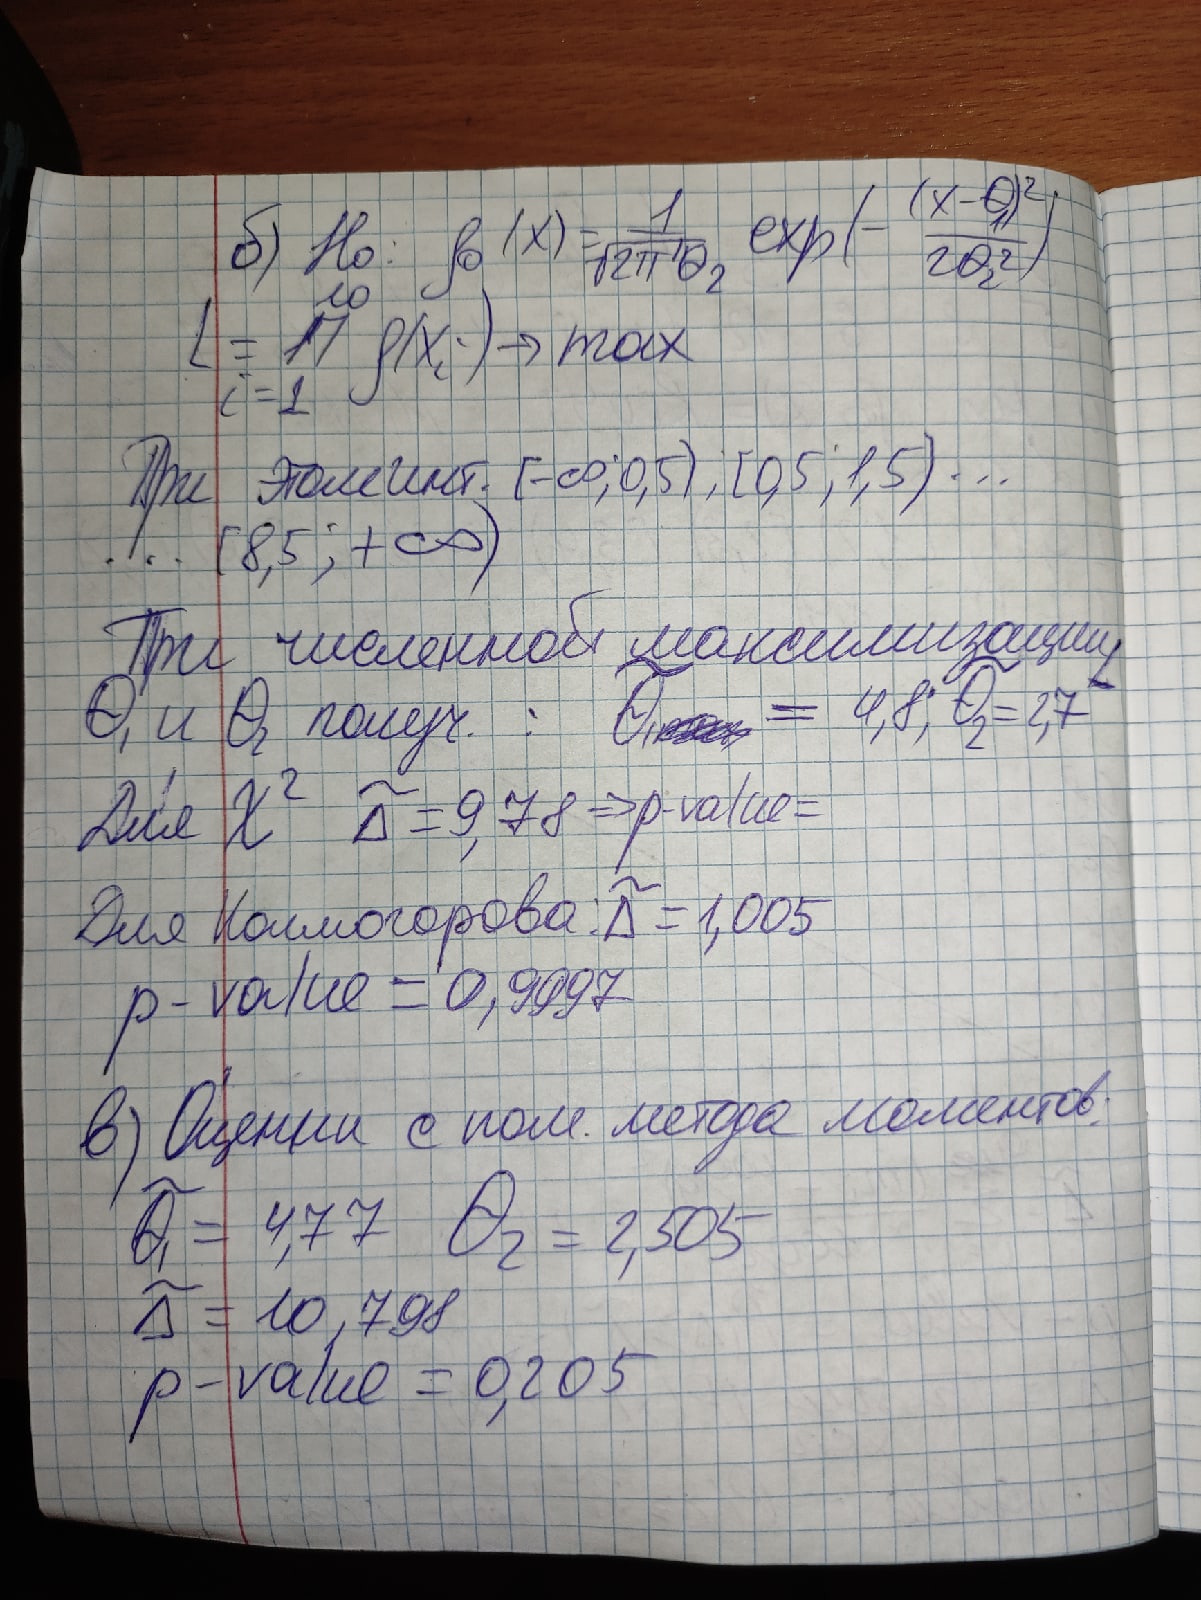 б) H₀: f₀(x) = 1/(√2π θ₂) exp(- (x-θ₁)²/(2θ₂²))
L = ∏ᵢ₌₁¹⁰ f(xᵢ) → max
При этом инт. [-∞; 0,5); [0,5; 1,5) ...
... [8,5; +∞)
При численной максимизации
θ₁ и θ₂ получ. : θ̃₁ = 4,8; θ̃₂ = 2,7
Для χ² Δ̃ = 9,78 ⇒ p-value =
Для Колмогорова: Δ̃ = 1,005
p-value = 0,9997
в) Оценки с пом. метода моментов:
θ̃₁ = 4,77 θ₂ = 2,505
Δ̃ = 10,798
p-value = 0,205